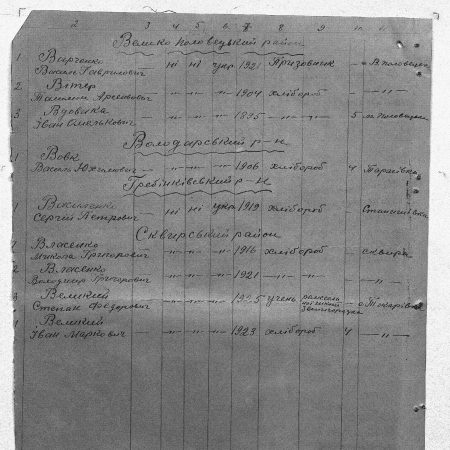 2 3 4 5 6 7 8 9 10 11
Велико половецький район
1 Варченко ні ні укр 1921 Призовник - В. половецьке
Василь Гаврилович
2 Вітер -"- -"- -"- 1904 хлібороб - -"-
Арсенович
3 Вдовика -"- -"- -"- 1895 -"- -"- 5 м. половецьке
Іван Омелькович
Володарський р-н
1 Вовк -"- -"- -"- 1906 хлібороб 4
Василь Юхимович
Гребінківський р-н
1 Василенко ні ні укр 1919 хлібороб -
Сергій Петрович
Сквирський район
1 Власенко -"- -"- -"- 1916 хлібороб - сквира
Микола Григорович
2 Власенко -"- -"- -"- 1921 -"- -"- - -"-
Володимир Григорович
3 Великий -"- -"- -"- учень
Степан Федорович Звенигородка
1 Великий -"- -"- -"- 1923 хлібороб 4 -"-
Іван Маркович